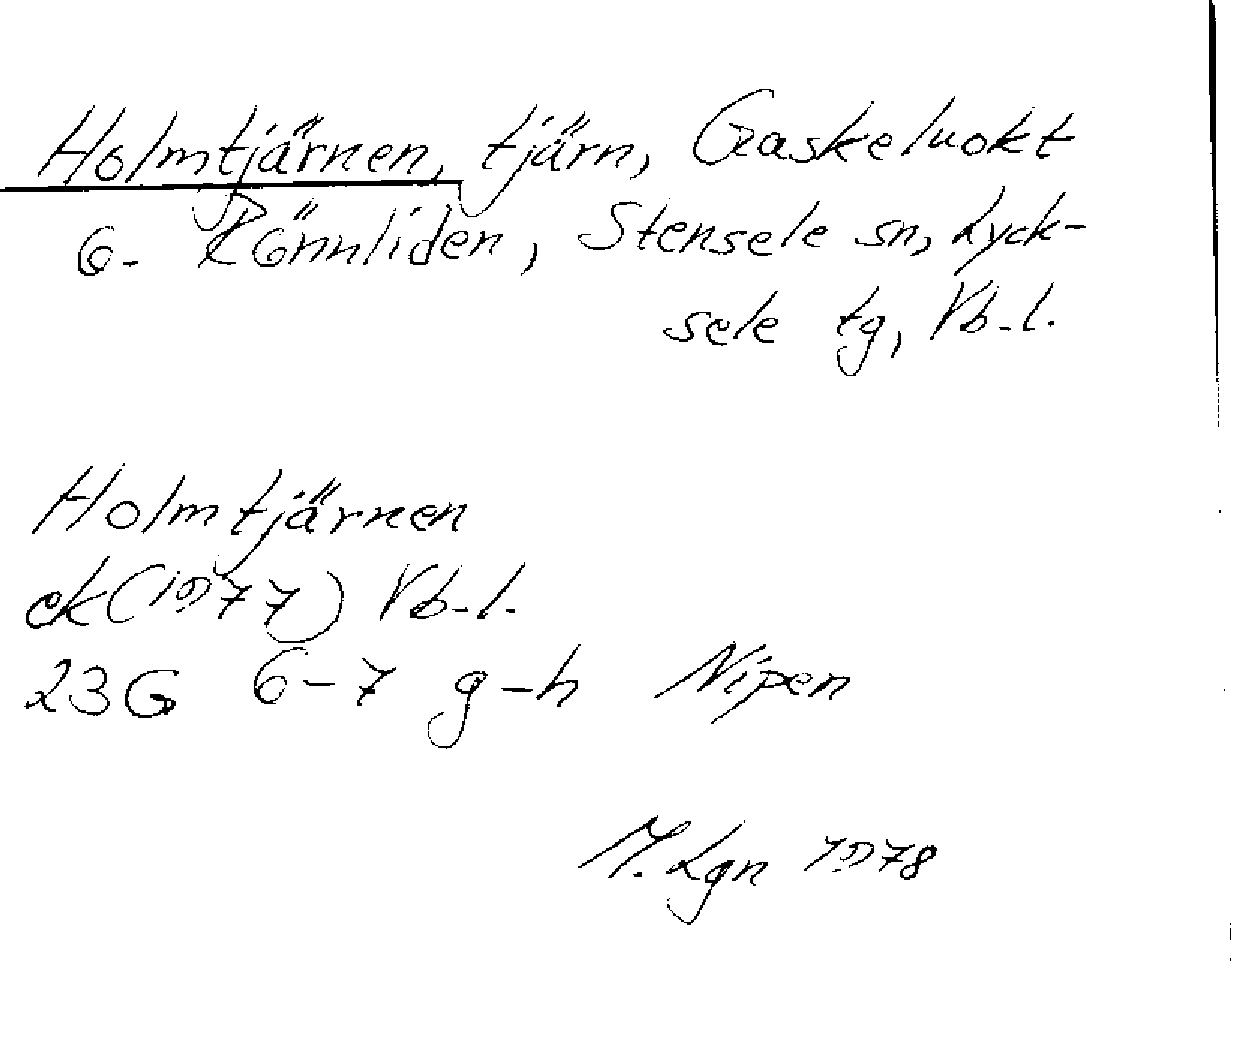 Holmtjärnen, tjärn, Gaskeluokt
o. Rönnliden, Stensele sn, Lyck-
sele tg, Vb-l.
Holmtjärnen
ek (1977) Vb-l.
23G 6-7 g-h Nipen
M. Lgn 1978